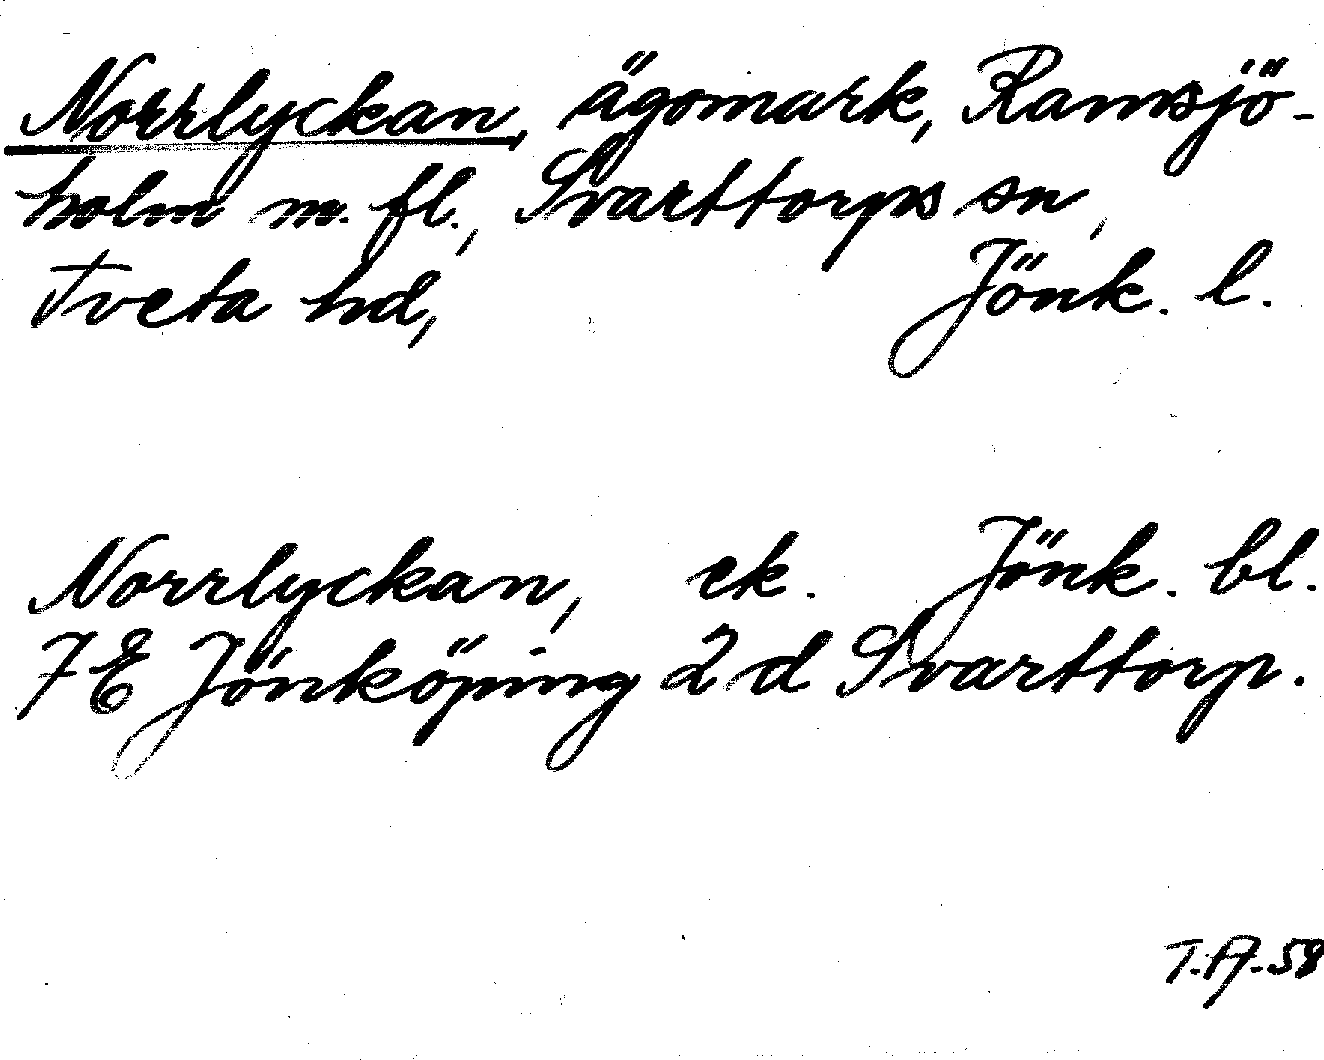 Norrlyckan, ägomark, Ramsjö-
holm m. fl., Svarttorps sn,
Tveta hd, Jönk. l.
Norrlyckan, ek. Jönk. bl.
7E Jönköping 2d Svarttorp.
T.A.58